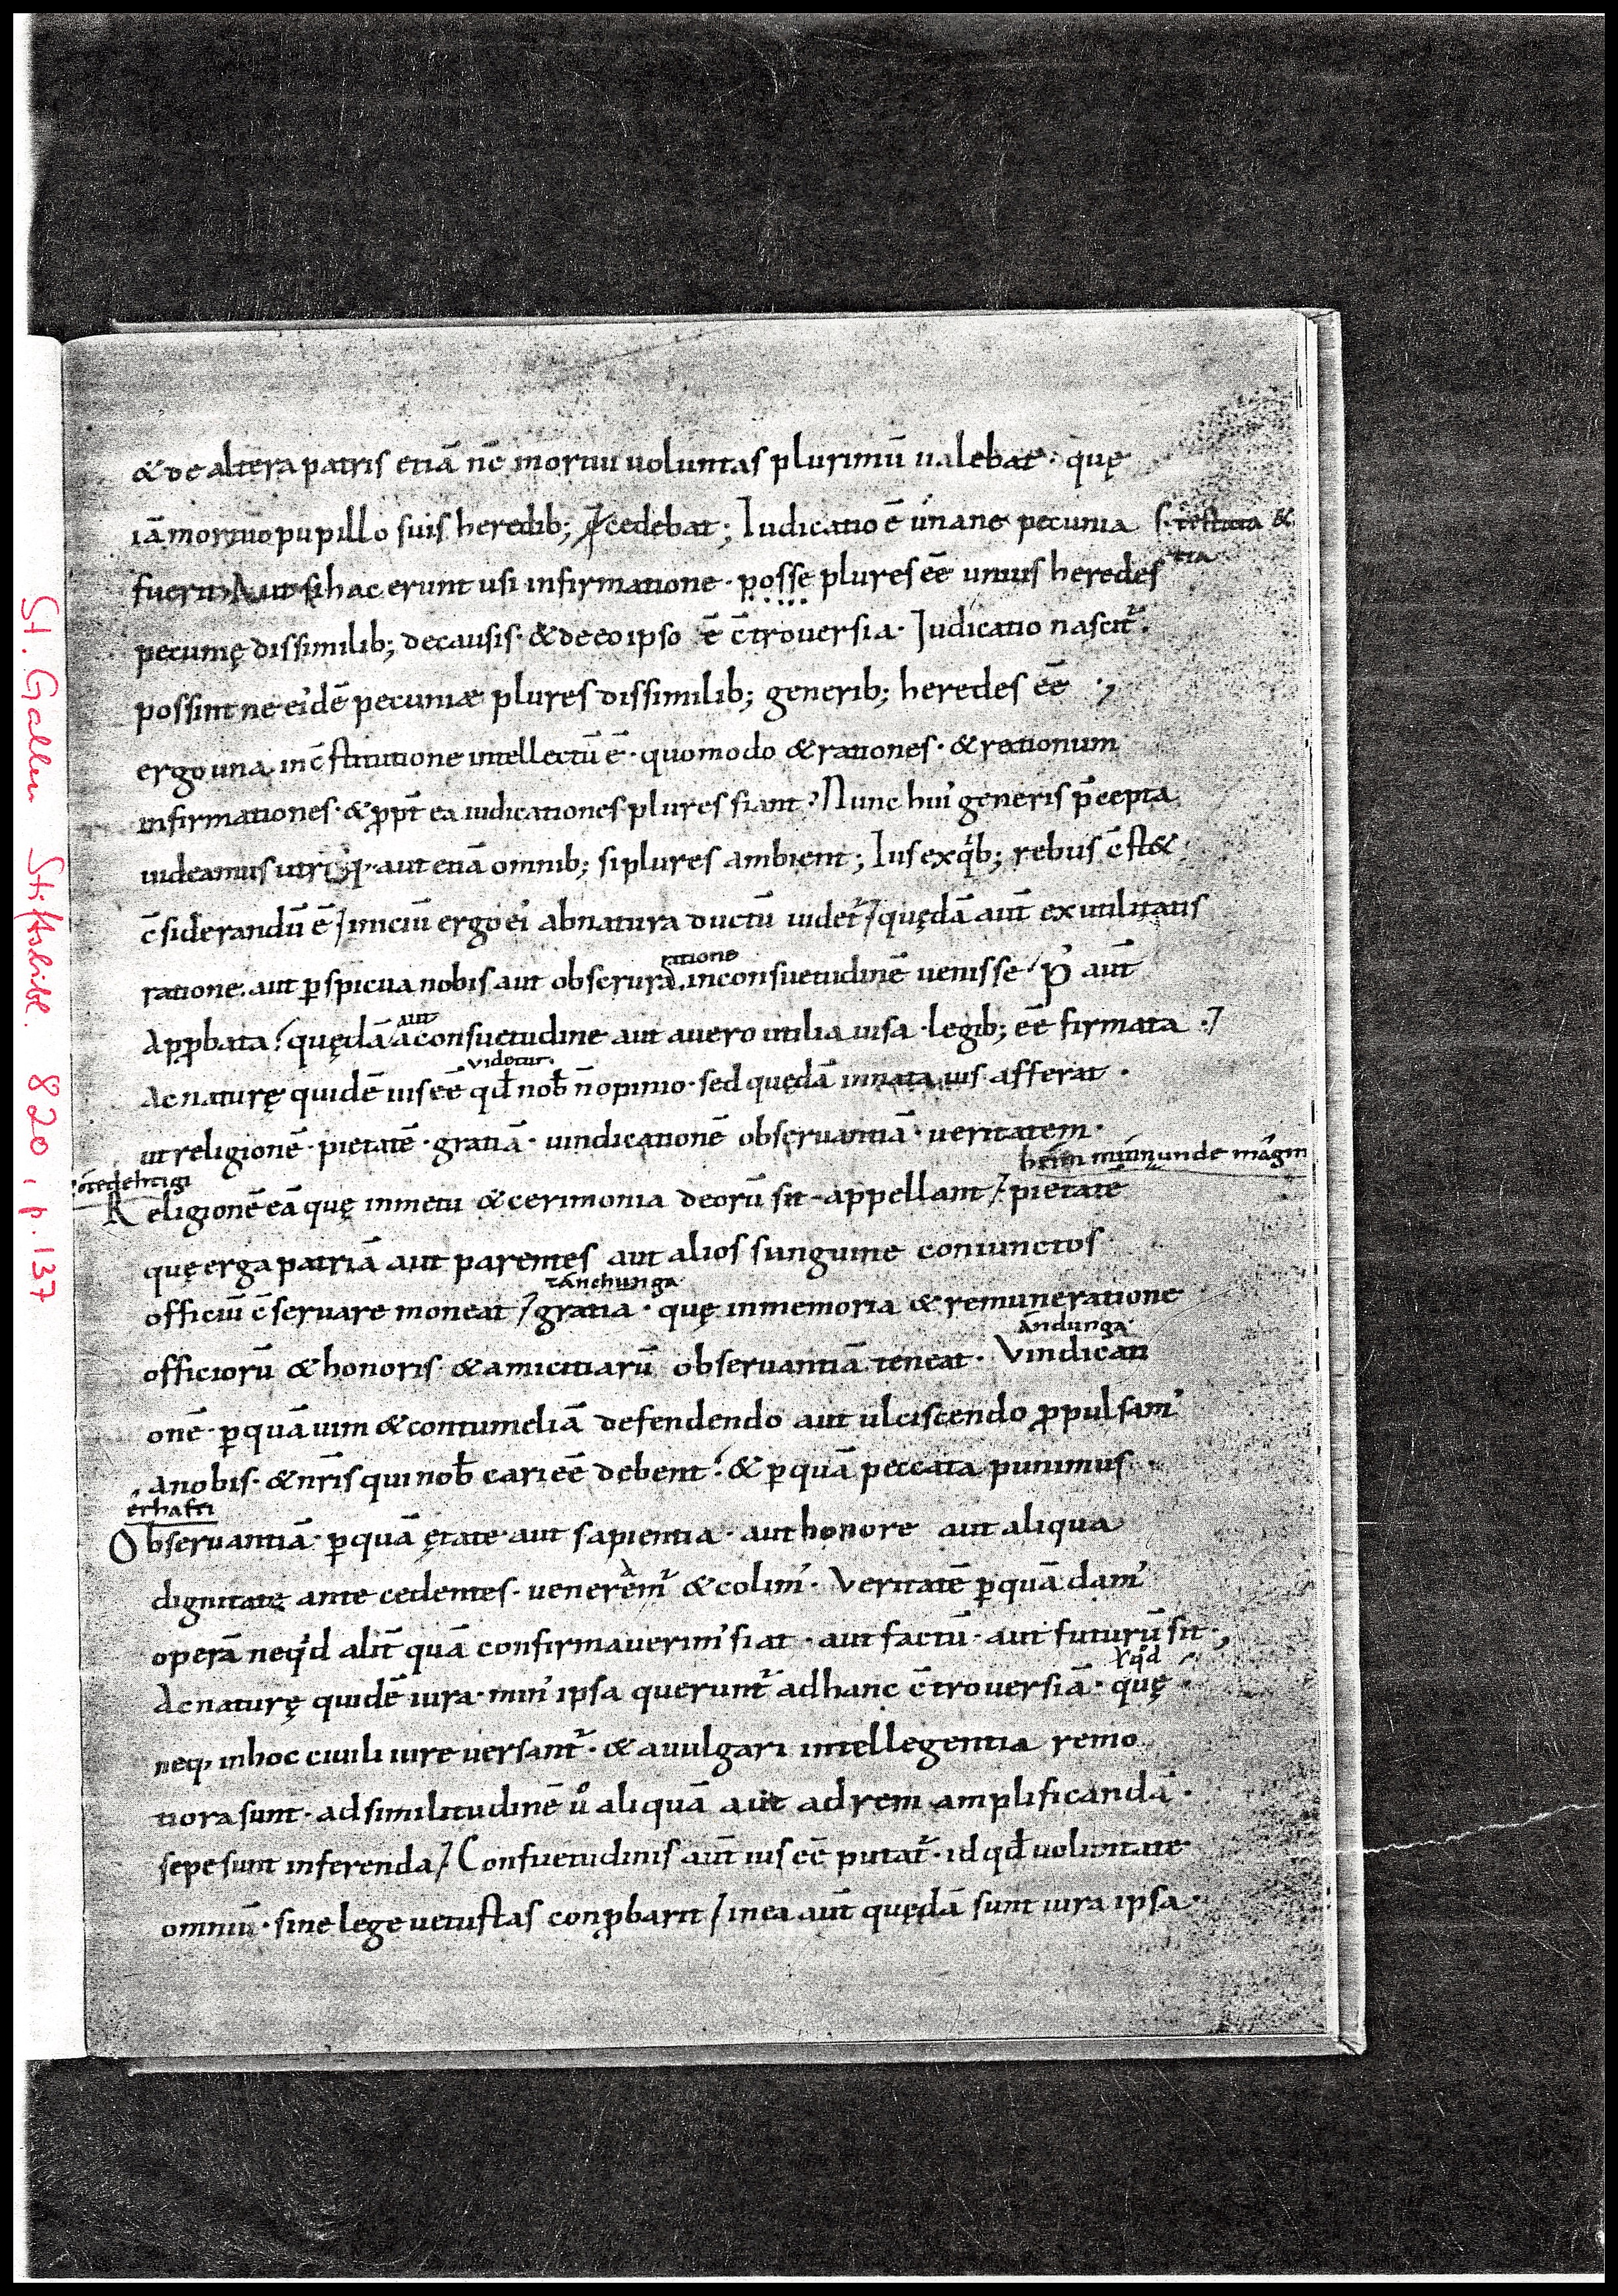 & de altera patris etiā nē mortui uoluntas plurimū ualebat· quę
iā mortuo pupillo suis heredib; cedebat; Iudicatio ē únane pecunia
fuerit Aut si hac erunt usi infirmatione· posse plures eē unius heredes
pecunię dissimilib; de causis· & de eo ipso ē c̄trouersia· Iudicatio nascit᷑.
possint ne eidē pecuniæ plures dissimilib; generib; heredes eē ·,
ergo una in c̄stitutione intellectū ē· quomodo & rationes· & rationum
infirmationes· & ꝓpt̄ ea iudicationes plures fiant· Nunc hui' generis p̄cepta
uideamus aut etiā omnib; si plures ambient; Ius ex qⁱb; rebus c̄st&
c̄siderandū ē / iniciū ergo ei' ab natura ductū uidet᷑ / quędā aut̄ ex utilitatis
ratione
ratione. aut ꝑspicua nobis aut obscura. in consuetudinē uenisse· p' aut̄
aut
Apꝓbata· quędā a consuetudine aut auero utilia uisa· legib; eē firmata ·7
videtur.
Ac naturę quidē ius eē qđ nob̄ n̄ opinio· sed quędā innata uis afferat ·
ut religionē· pietatē· gratiā· uindicationē obseruantiā· ueritatem·
héim mínnunde mâgin
Religionē eā quę in metu & cerimonia deorū sit appellant / pietatē
quę erga patriā aut parentes aut alios sanguine coniunctos
tánchunga
officiū c̄seruare moneat / gratia · quę in memoria & remuneratione
ándunga
officiorū & honoris & amicitiarū obseruantiā teneat· Vindicati
onē ꝑquā uim & contumeliā defendendo aut ulciscendo ꝓpulsam'
a nobis· & nr̄is qui nob̄ cari eē debent· & ꝑquā peccata punimus
êrhafti
Obseruantiā ꝑquā ętate aut sapientia· aut honore aut aliqua
dignitate ante cedentes· uenerem' & colim'· Veritatē ꝑquā dam'
operā neqⁱd alit̄ quā confirmauerim' fiat· aut factū· aut futurū sit·,
Ac naturę quidē iura· min' ipsa querunt᷑ ad hanc c̄trouersiā· quę
neq, in hoc ciuili iure uersant᷑· & a uulgari intellegentia remo
tiora sunt· ad similitudinē u° aliquā aut ad rem amplificandā·
sepe sunt inferenda / Consuetudinis aut̄ ius eē putat᷑· id qđ uoluntate
omniū· sine lege uetustas conꝓbarit / in ea aut̄ quędā sunt iura ipsa·
St. Gallen Stiftsbibl. 820, p. 137